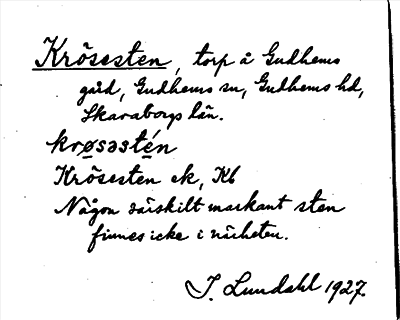 Krösesten, torp å Gudhems
gård, Gudhems sn, Gudhems hd,
Skaraborgs län.
krøsəstén
Krösesten ek, Kb
Någon särskilt markant sten
finnes icke i närheten.
I. Lundahl 1927.